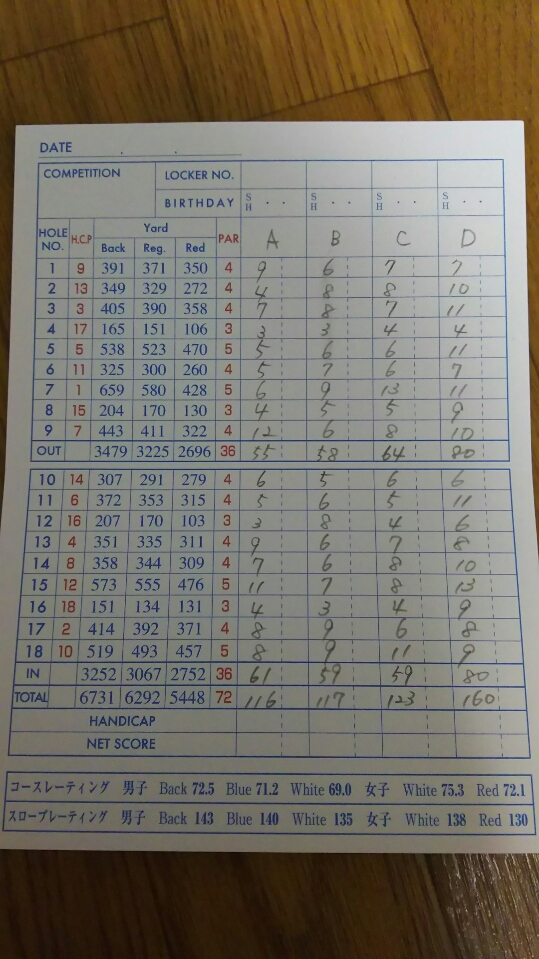 DATE . .
COMPETITION LOCKER NO.
BIRTHDAY S H . . S H . . S H . . S H . .
HOLE NO. H.C.P Yard PAR A B C D
Back Reg. Red
1 9 391 371 350 4 9 6 7 7
2 13 349 329 272 4 4 8 8 10
3 3 405 390 358 4 7 8 7 11
4 17 165 151 106 3 3 3 4 4
5 5 538 523 470 5 5 6 6 11
6 11 325 300 260 4 5 7 6 7
7 1 659 580 428 5 6 9 13 11
8 15 204 170 130 3 4 5 5 9
9 7 443 411 322 4 12 6 8 10
OUT 3479 3225 2696 36 55 58 64 80
10 14 307 291 279 4 6 5 6 6
11 6 372 353 315 4 5 6 5 11
12 16 207 170 103 3 3 8 4 6
13 4 351 335 311 4 9 6 7 8
14 8 358 344 309 4 7 6 8 10
15 12 573 555 476 5 11 7 8 13
16 18 151 134 131 3 4 3 4 9
17 2 414 392 371 4 8 9 6 8
18 10 519 493 457 5 8 9 11 9
IN 3252 3067 2752 36 61 59 59 80
TOTAL 6731 6292 5448 72 116 117 123 160
HANDICAP
NET SCORE
コースレーティング 男子 Back 72.5 Blue 71.2 White 69.0 女子 White 75.3 Red 72.1
スロープレーティング 男子 Back 143 Blue 140 White 135 女子 White 138 Red 130